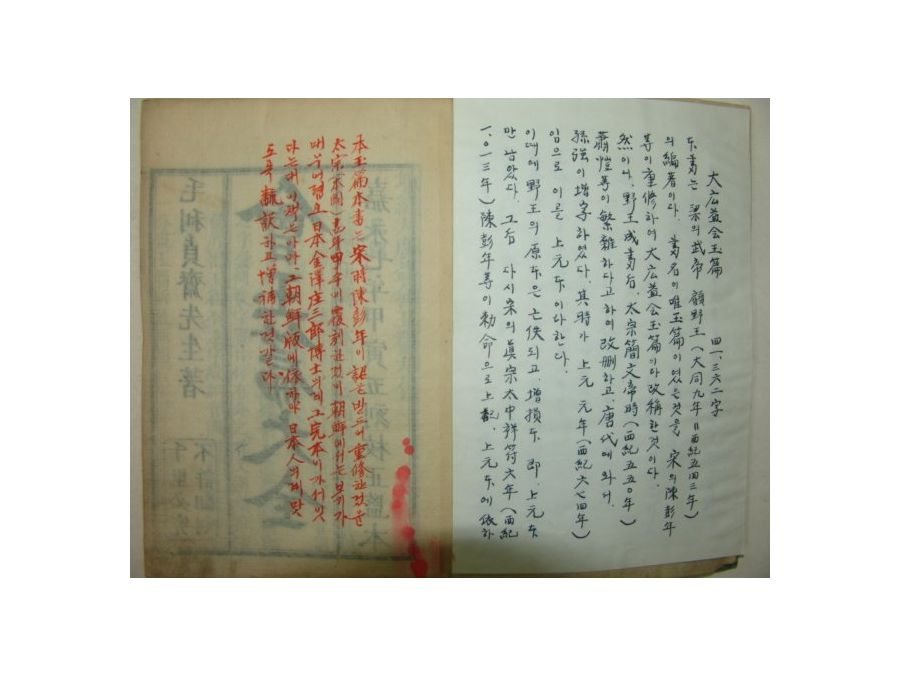 大広益会玉篇 四一、三六二字
本書는 梁의 武帝 顧野王(大同九年=西紀五四三年)
의 編著이다. 書名이 唯玉篇이였은것을 宋의 陳彭年
等이 重修하여 大広益会玉篇이라 改稱한것이다.
然이나, 野王成書后, 太宗簡文帝時(西紀五五〇年)
蕭愷等이 繁雜하다고하여 改刪하고, 唐代에 와서
孫強이 增字하였다. 其時가 上元 元年(西紀六七四年)
임으로 이를 上元本이라한다.
이때에 野王의 原本은 亡佚되고, 增損本 即, 上元本
만 남았다. 그后 다시 宋의 眞宗 太中祥符六年(西紀
一、〇一三年) 陳彭年等이 勅命으로 上記, 上元本에 依하
本玉篇本書는 宋時陳彭年이 詔를받드러 重修한것을
太宗(本國) 年甲午에 覆刻한것이 朝鮮에서는 보기가
매우어렵고 日本 金澤庄三郎博士의게 그 完本이 가저잇
다는데 이책는아마 그 朝鮮版에 依하야 日本人의게 맛
도록 飜訳하고 增補한것갓다
嘉永七年甲寅五刻校正監本
毛利貞齋先生著